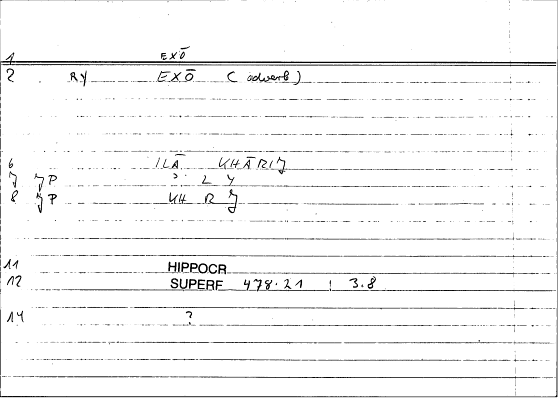 1 EXŌ
2 RY EXŌ (adverb)
6 ILĀ KHĀRIJ
7 JP ʾ L Y
8 JP KH R J
11 HIPPOCR
12 SUPERF 478.21 | 3.8
14 ?